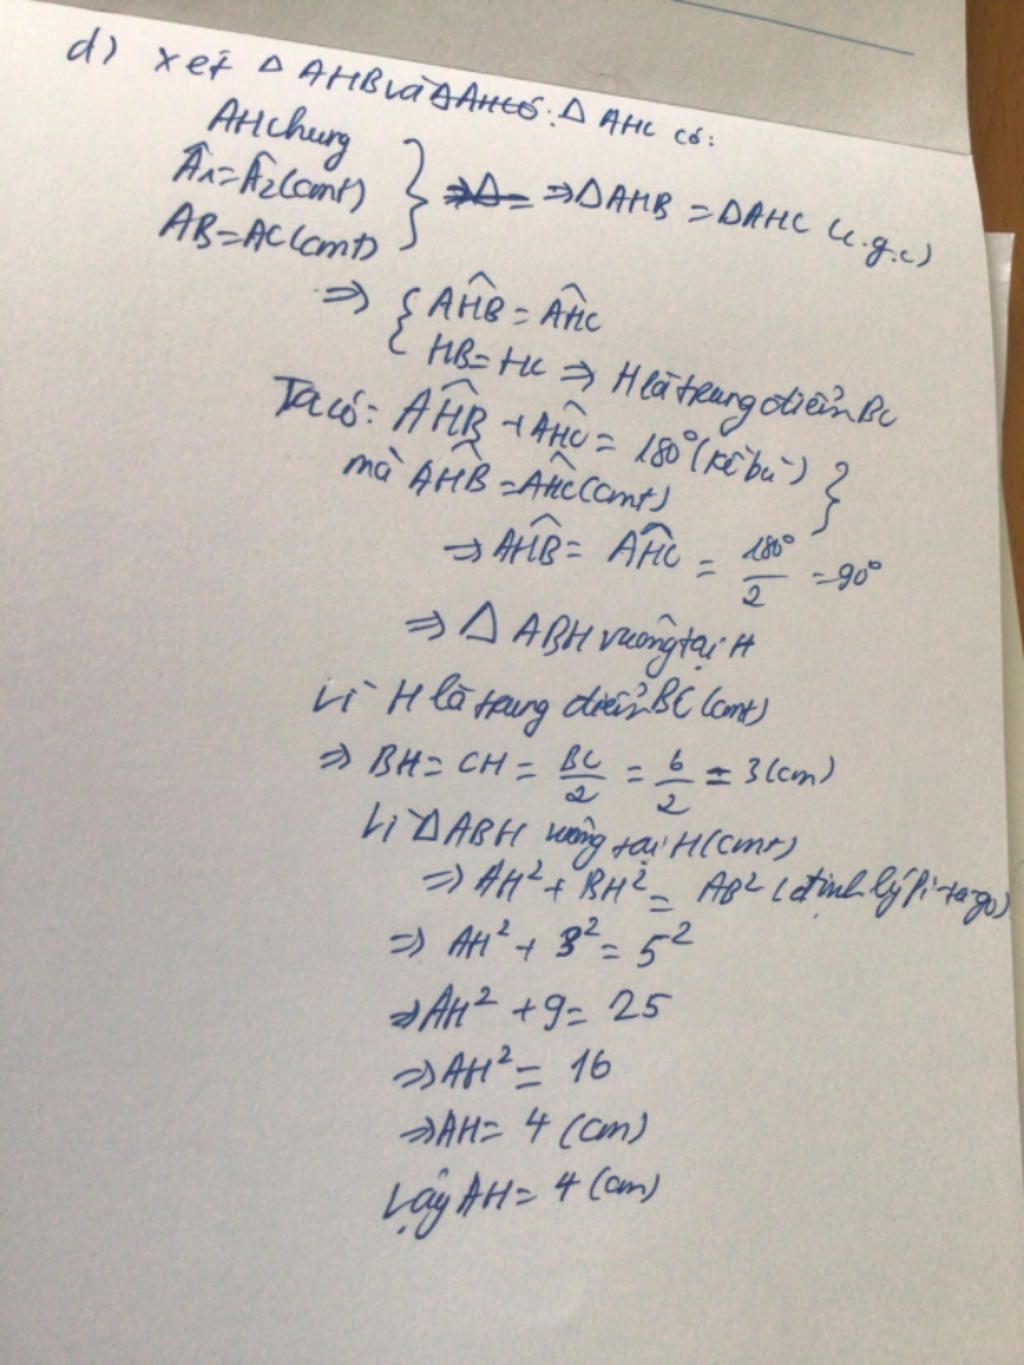 d) xét Δ AHB và ΔAHC có: Δ AHC có:
AH chung
Â1 = Â2 (cmt) } ⇒Δ= ⇒ΔAHB = ΔAHC (c.g.c)
AB = AC (cmt)
⇒ { AHB̂ = AHĈ
HB = HC ⇒ H là trung điểm BC
Ta có: AHB̂ + AHĈ = 180° (kề bù) }
mà AHB̂ = AHĈ (cmt)
⇒ AHB̂ = AHĈ = 180°/2 = 90°
⇒ Δ ABH vuông tại H
Vì H là trung điểm BC (cmt)
⇒ BH = CH = BC/2 = 6/2 = 3 (cm)
Vì ΔABH vuông tại H (cmt)
⇒ AH² + BH² = AB² (định lý Pi-ta-go)
⇒ AH² + 3² = 5²
⇒ AH² + 9 = 25
⇒ AH² = 16
⇒ AH = 4 (cm)
Vậy AH = 4 (cm)